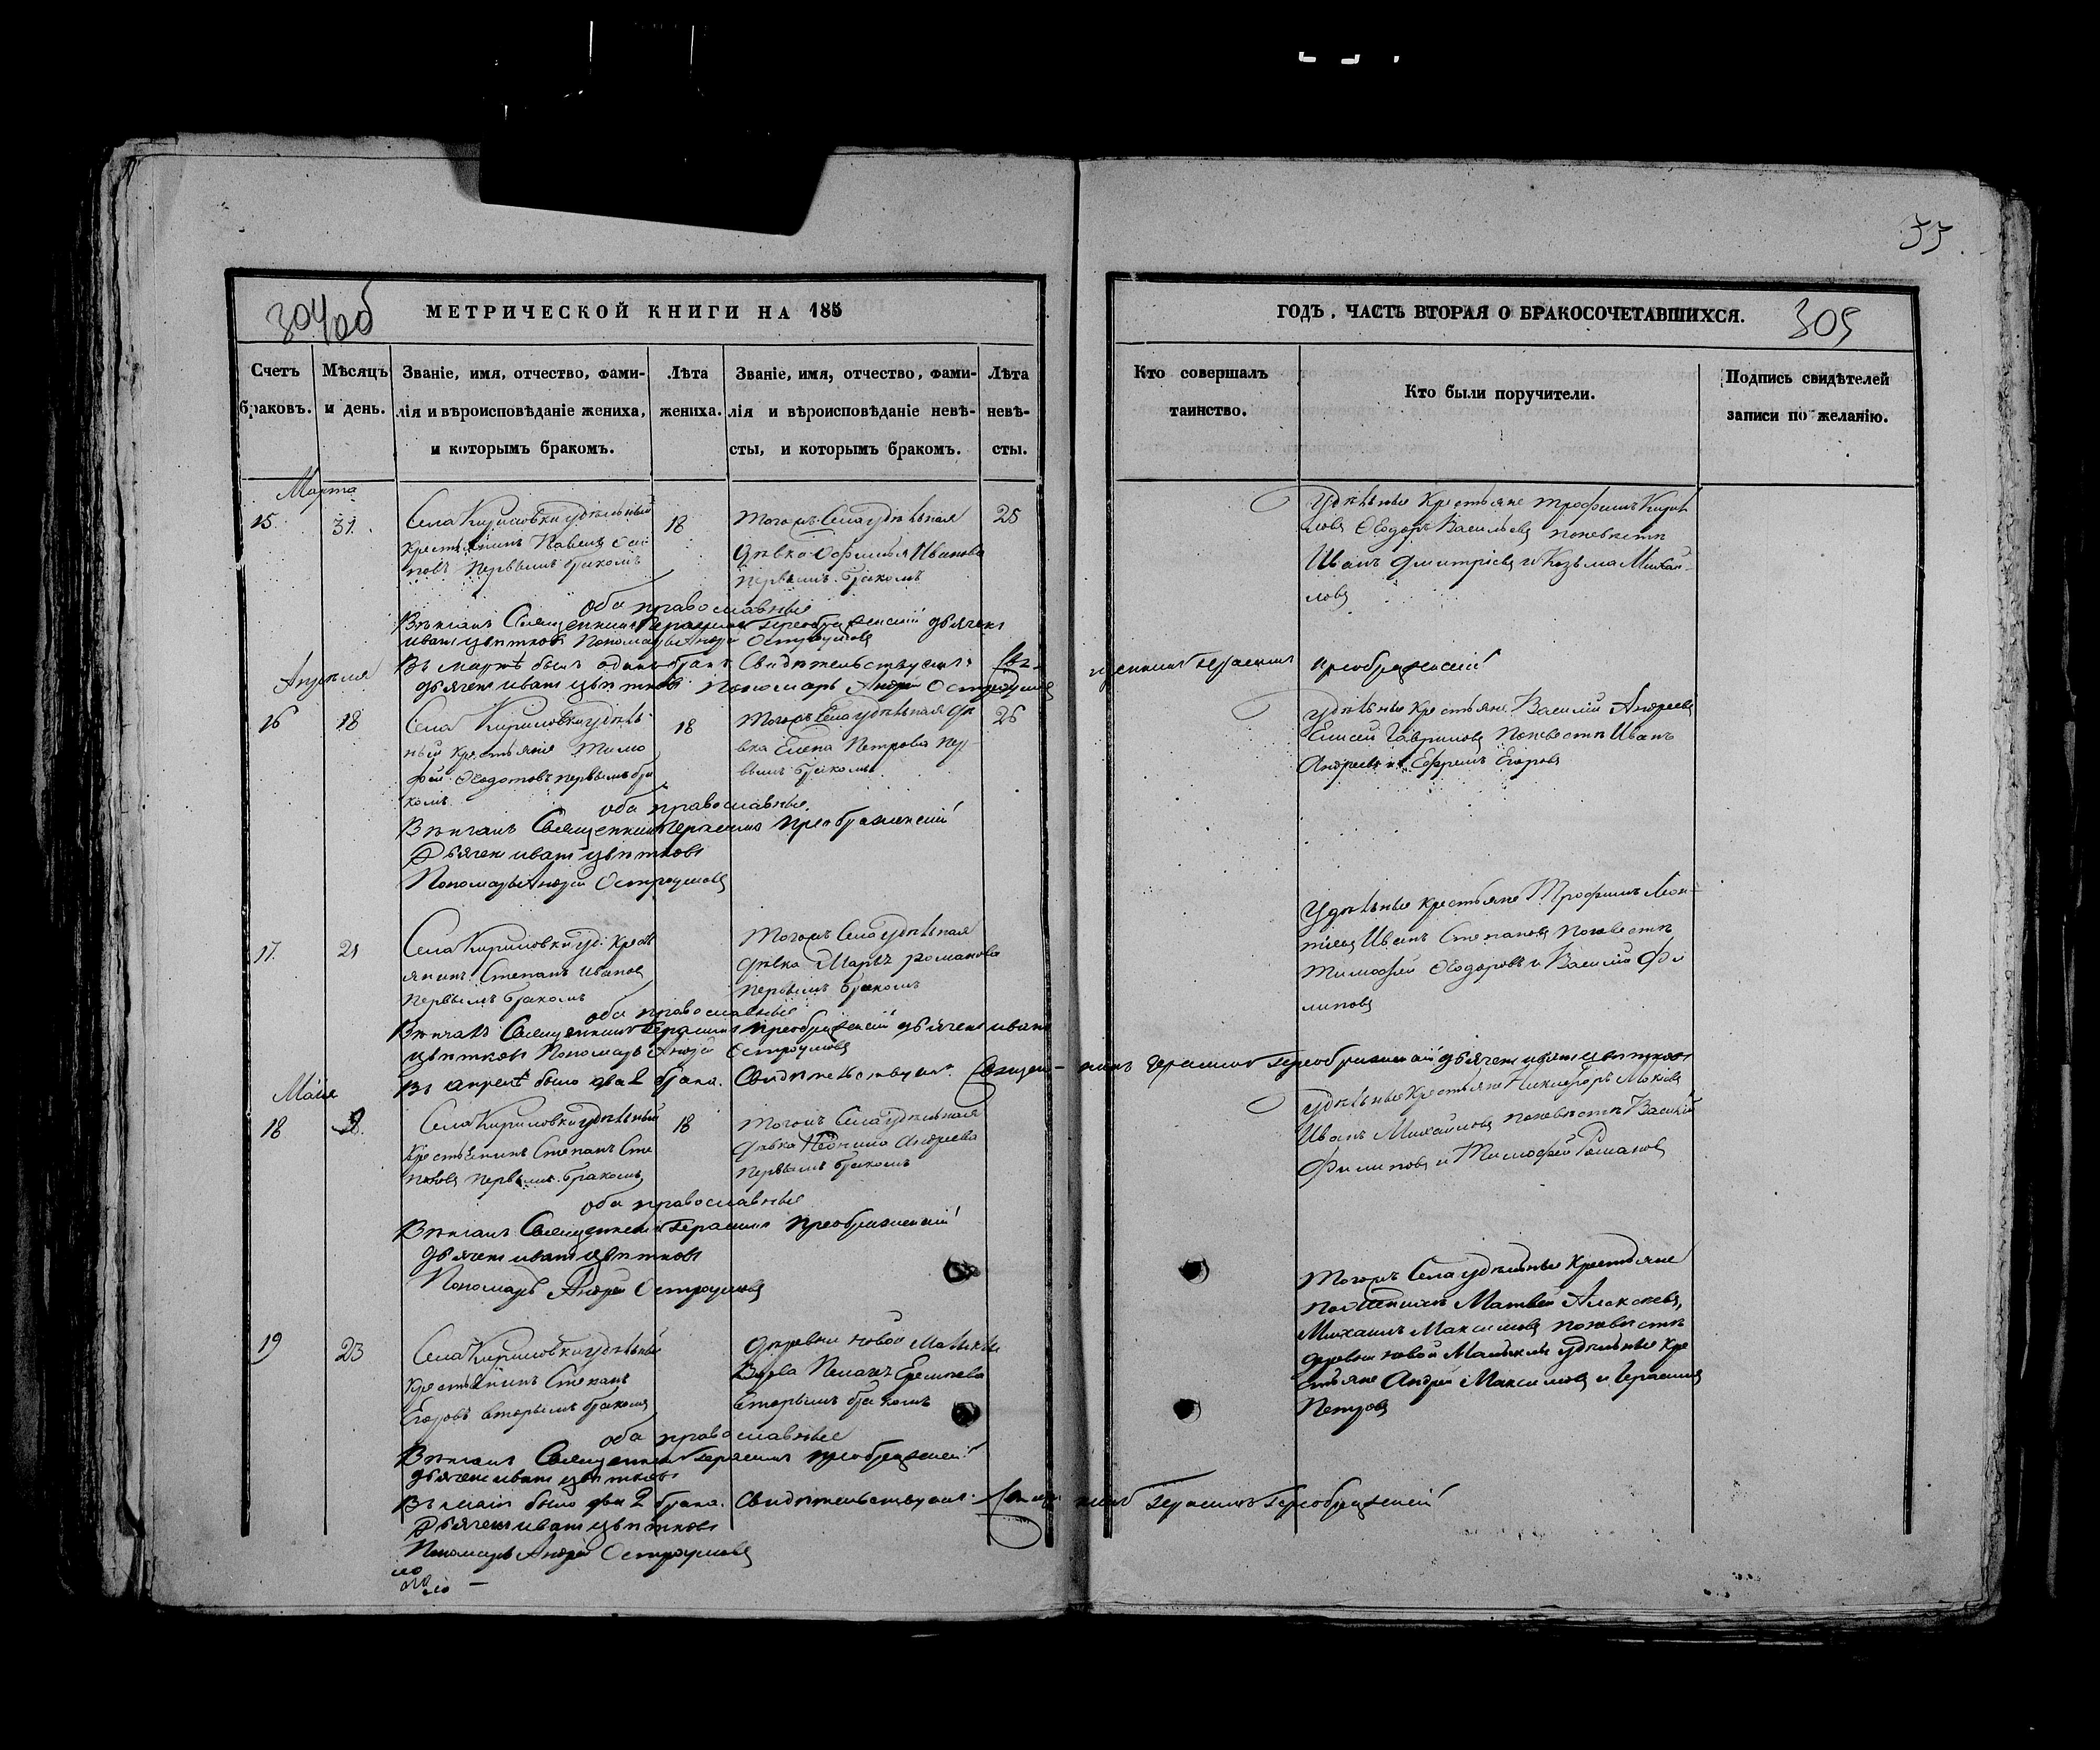 33
304 об
МЕТРИЧЕСКОЙ КНИГИ НА 185
ГОДЪ, ЧАСТЬ ВТОРАЯ О БРАКОСОЧЕТАВШИХСЯ.
305
Счетъ браковъ.
Мѣсяцъ и день.
Званіе, имя, отчество, фами-
лія и вѣроисповѣданіе жениха,
и которымъ бракомъ.
Лѣта жениха.
Званіе, имя, отчество, фами-
лія и вѣроисповѣданіе невѣ-
сты, и которымъ бракомъ.
Лѣта невѣ-
сты.
Кто совершалъ
таинство.
Кто были поручители.
Подпись свидѣтелей
записи по желанію.
Марта
15. 31.
Села Кириловки удѣльный
крестьянинъ Павелъ Оси
повъ первымъ бракомъ
18
Тогожъ Села удѣльная
дѣвка Софимья Иванова
первымъ бракомъ
25
Удѣльные крестьяне Трофимъ Кирил
ловъ Ѳеодоръ Васильевъ поневѣстѣ
Иванъ Дмитріевъ и Козьма Михай-
ловъ
оба православные
Вѣнчалъ Священникъ Герасимъ Преображенскій дьячекъ
Иванъ Цвѣтковъ Пономарь Андрей Остроумовъ
Въ мартѣ былъ одинъ бракъ. Свидѣтельствуемъ: Свя-
щенникъ Герасимъ Преображенскій
дьячекъ Иванъ Цвѣтковъ Пономарь Андрей Остроумовъ
Апрѣля
16 18
Села Кириловки удѣль-
ный крестьянинъ Тимо
фей Ѳеодотовъ первымъ бра
комъ
18
Тогожъ Села удѣльная дѣ
вка Елена Петрова пер-
вымъ бракомъ
26
Удѣльные крестьяне Василій Андреевъ
Елисей Гавриловъ поневѣстѣ Иванъ
Андреевъ и Ефремъ Егоровъ
оба православные.
Вѣнчалъ Священникъ Герасимъ Преображенскій
Дьячекъ Иванъ Цвѣтковъ
Пономарь Андрей Остроумовъ
17. 21
Села Кириловки уд: крест
янинъ Степанъ Ивановъ
первымъ бракомъ
Тогожъ Села удѣльная
дѣвка Марья Романова
первымъ бракомъ
Удѣльные крестьяне Трофимъ Леон-
тіевъ Иванъ Степановъ поневѣстѣ
Тимофей Ѳеодоровъ и Василій Фи
липовъ
оба православные
Вѣнчалъ Священникъ Герасимъ Преображенскій дьячекъ Иванъ
Цвѣтковъ Пономарь Андрей Остроумовъ
Въ апрелѣ было два 2 брака. Свидѣтельствуемъ: Священ-
никъ Герасимъ Преображенскій дьячекъ Иванъ Цвѣтковъ
Маія
18
Села Кириловки удѣльный
крестьянинъ Степанъ Сте
пановъ первымъ бракомъ
18
Тогожъ Села удѣльная
дѣвка Андреева
первымъ бракомъ
Удѣльные крестьяне Никифоръ
Иванъ Михайловъ поневѣстѣ Василій
Филиповъ и Тимофей Романовъ
оба православные
Вѣнчалъ Священникъ Герасимъ Преображенскій
дьячекъ Иванъ Цвѣтковъ
Пономарь Андрей Остроумовъ
19 23
Села Кириловки удѣльный
крестьянинъ Степанъ
Егоровъ вторымъ бракомъ
деревни Новой
Вдова Еремѣева
вторымъ бракомъ
Тогожъ Села удѣльные крестьяне
Матвей Алексѣевъ,
Михаилъ Максимовъ поневѣстѣ
деревни Новой удѣльные кре
стьяне Андрей Максимовъ и Герасимъ
Петровъ
оба православные
Вѣнчалъ Священникъ Герасимъ Преображенскій
дьячекъ Иванъ Цвѣтковъ
Въ маіѣ было два 2 брака. Свидѣтельствуемъ: Священникъ Герасимъ Преображенскій
Дьячекъ Иванъ Цвѣтковъ
Пономарь Андрей Остроумовъ